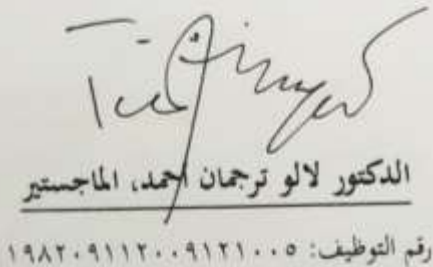 الدكتور لالو ترجمان احمد، الماجستير
رقم التوظيف: ١٩٨٢٠٩١١٢٠٠٩١٢١٠٠٥